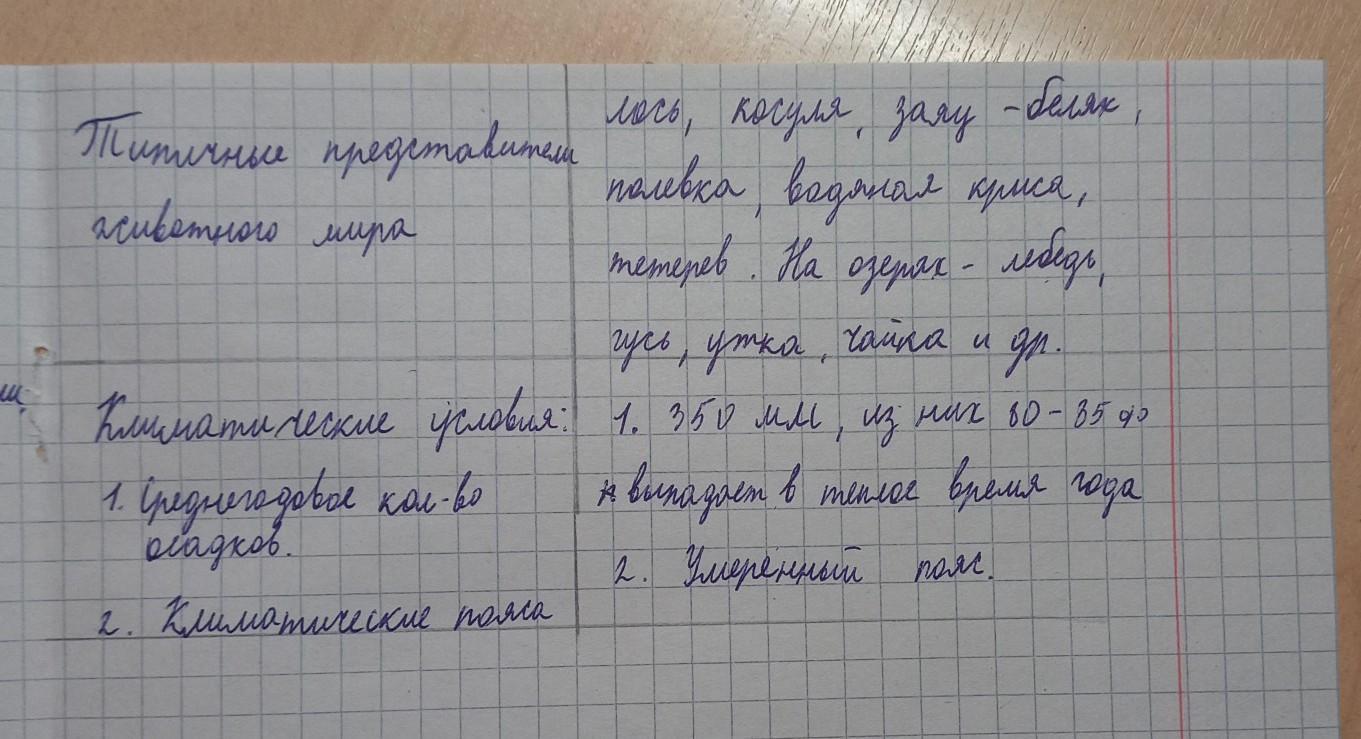 Типичные представители
животного мира
лось, косуля, заяц - беляк,
полевка, водяная крыса,
тетерев. На озерах - лебедь,
гусь, утка, чайка и др.
Климатические условия:
1. Среднегодовое кол-во
осадков.
2. Климатические пояса
1. 350 мм, из них 80-85%
выпадает в теплое время года
2. Умеренный пояс.